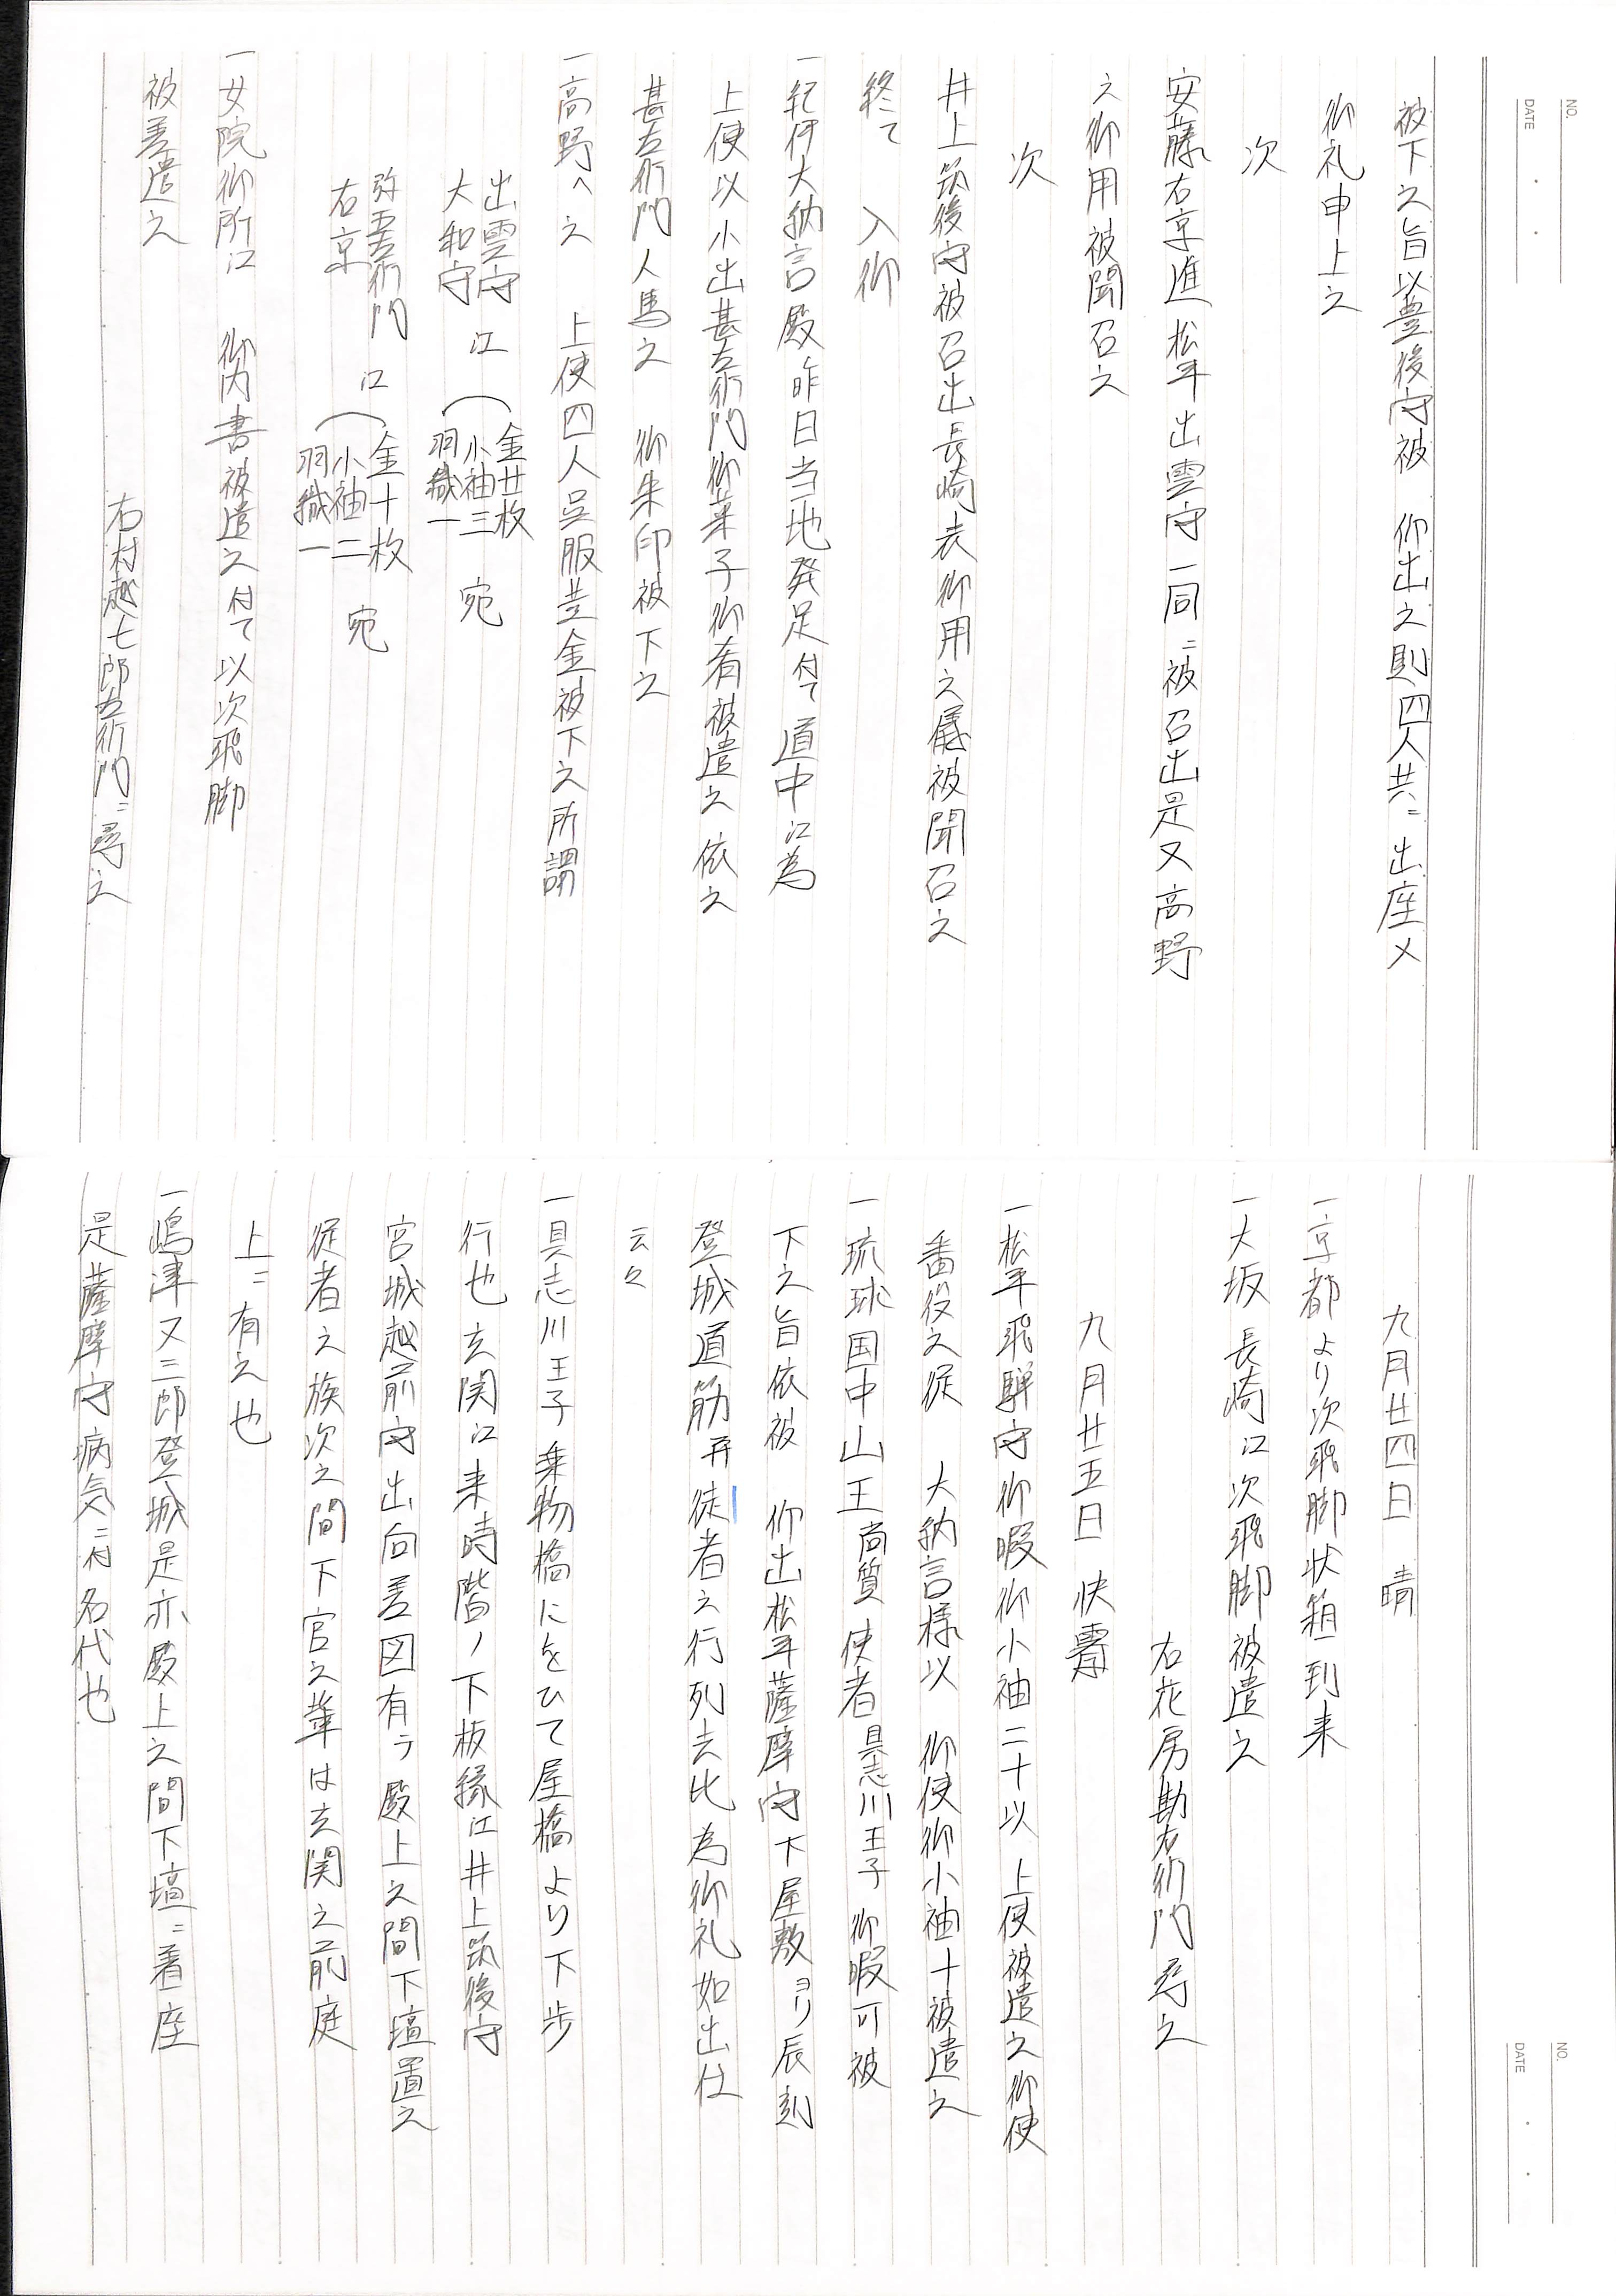 NO.
DATE
被下之旨以豊後守被　仰出之則四人共ニ出座〆
御礼申上之
次
安藤右京進松平出雲守一同ニ被召出是又高野
之御用被聞召之
次
井上筑後守被召出長崎表御用之儀被聞召之
終て　入御
一紀伊大納言殿昨日当地発足付て道中江為
上使以小出甚左衛門御菓子御肴被遣之依之
甚左衛門人馬之　御朱印被下之
一高野へ之　上使四人呉服並金被下之所謂
出雲守
大和守　江
金廿枚
小袖三　宛
羽織一
弥五左衛門
右京　江
金十枚
小袖二　宛
羽織一
一女院御所江　御内書被遣之付て以次飛脚
被差遣之
右村越七郎左衛門ニ尋之
NO.
DATE
九月廿四日　晴
一京都より次飛脚状箱一到来
一大坂長崎江次飛脚被遣之
右花房勘右衛門尋之
九月廿五日　快霽
一松平飛騨守御暇御小袖二十以　上使被遣之御使
番役之従　大納言様以　御使御小袖十被遣之
一琉球国中山王尚質使者具志川王子御暇可被
下之旨依被　仰出松平薩摩守下屋敷ヨリ辰刻
登城道筋并徒者之行列去比為御礼如出仕
云々
一具志川王子乗物橋にをひて屋橋より下歩
行也玄関江来時階ノ下板縁江井上筑後守
宮城越前守出向差図有テ殿上之間下壇置之
従者之族次之間下官之輩は玄関之前庭
上ニ有之也
一嶋津又三郎登城是亦殿上之間下壇ニ着座
是薩摩守病気ニ付名代也